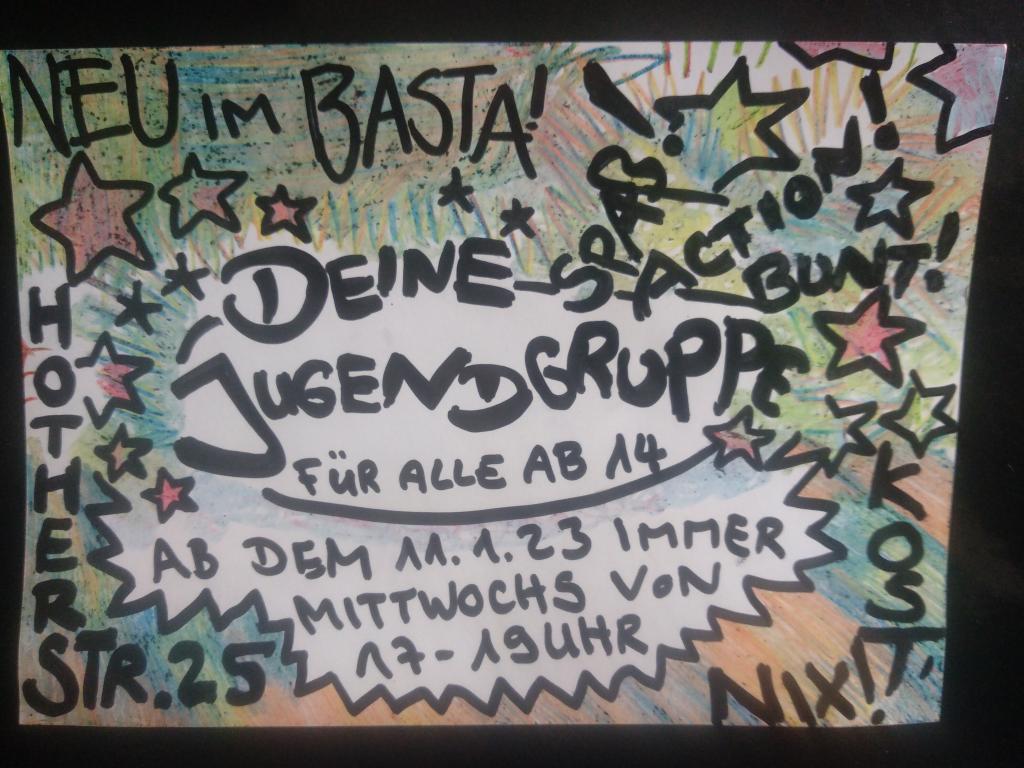 NEU IM BASTA!
SPAß!
ACTION!
BUNT!
DEINE
JUGENDGRUPPE
FÜR ALLE AB 14
AB DEM 11.1.23 IMMER
MITTWOCHS VON
17-19 UHR
HOTHER
STR. 25
KOST'
NIX!